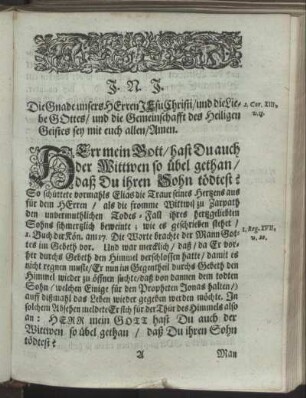 J. N. J.
Die Gnade unsers HErren JEsu Christi/ und die Lie- 2. Cor. XIII,
be GOttes/ und die Gemeinschafft des Heiligen v. 13.
Geistes sey mit euch allen/ Amen.
HErr mein Gott/ hast Du auch
der Wittwen so übel gethan/
daß Du ihren Sohn tödtest?
So schüttete vormahls Elias die Traur seines Hertzens aus
für dem HErren / als die fromme Wittwe zu Zarpath
den unvermuthlichen Todes-Fall ihres hertzgeliebten
Sohns schmertzlich beweinte; wie es geschrieben stehet 1. Reg. XVII,
1. Buch der Kön. am 17. Die Worte brachte der Mann Got- v. 20.
tes im Gebeth vor. Und war mercklich/ daß/ da Er vor-
her durchs Gebeth den Himmel verschlossen hatte/ damit es
nicht regnen muste/ Er nun im Gegentheil durchs Gebeth den
Himmel wieder zu öffnen suchte/ daß von dannen dem todten
Sohn / welchen Einige für den Propheten Jonas halten/
auff dißmahl das Leben wieder gegeben werden möchte. In
solchem Absehen meldete Er sich für der Thür des Himmels also
an: HERR mein GOTT hast Du auch der
Wittwen so übel gethan/ daß Du ihren Sohn
tödtest?
A Man